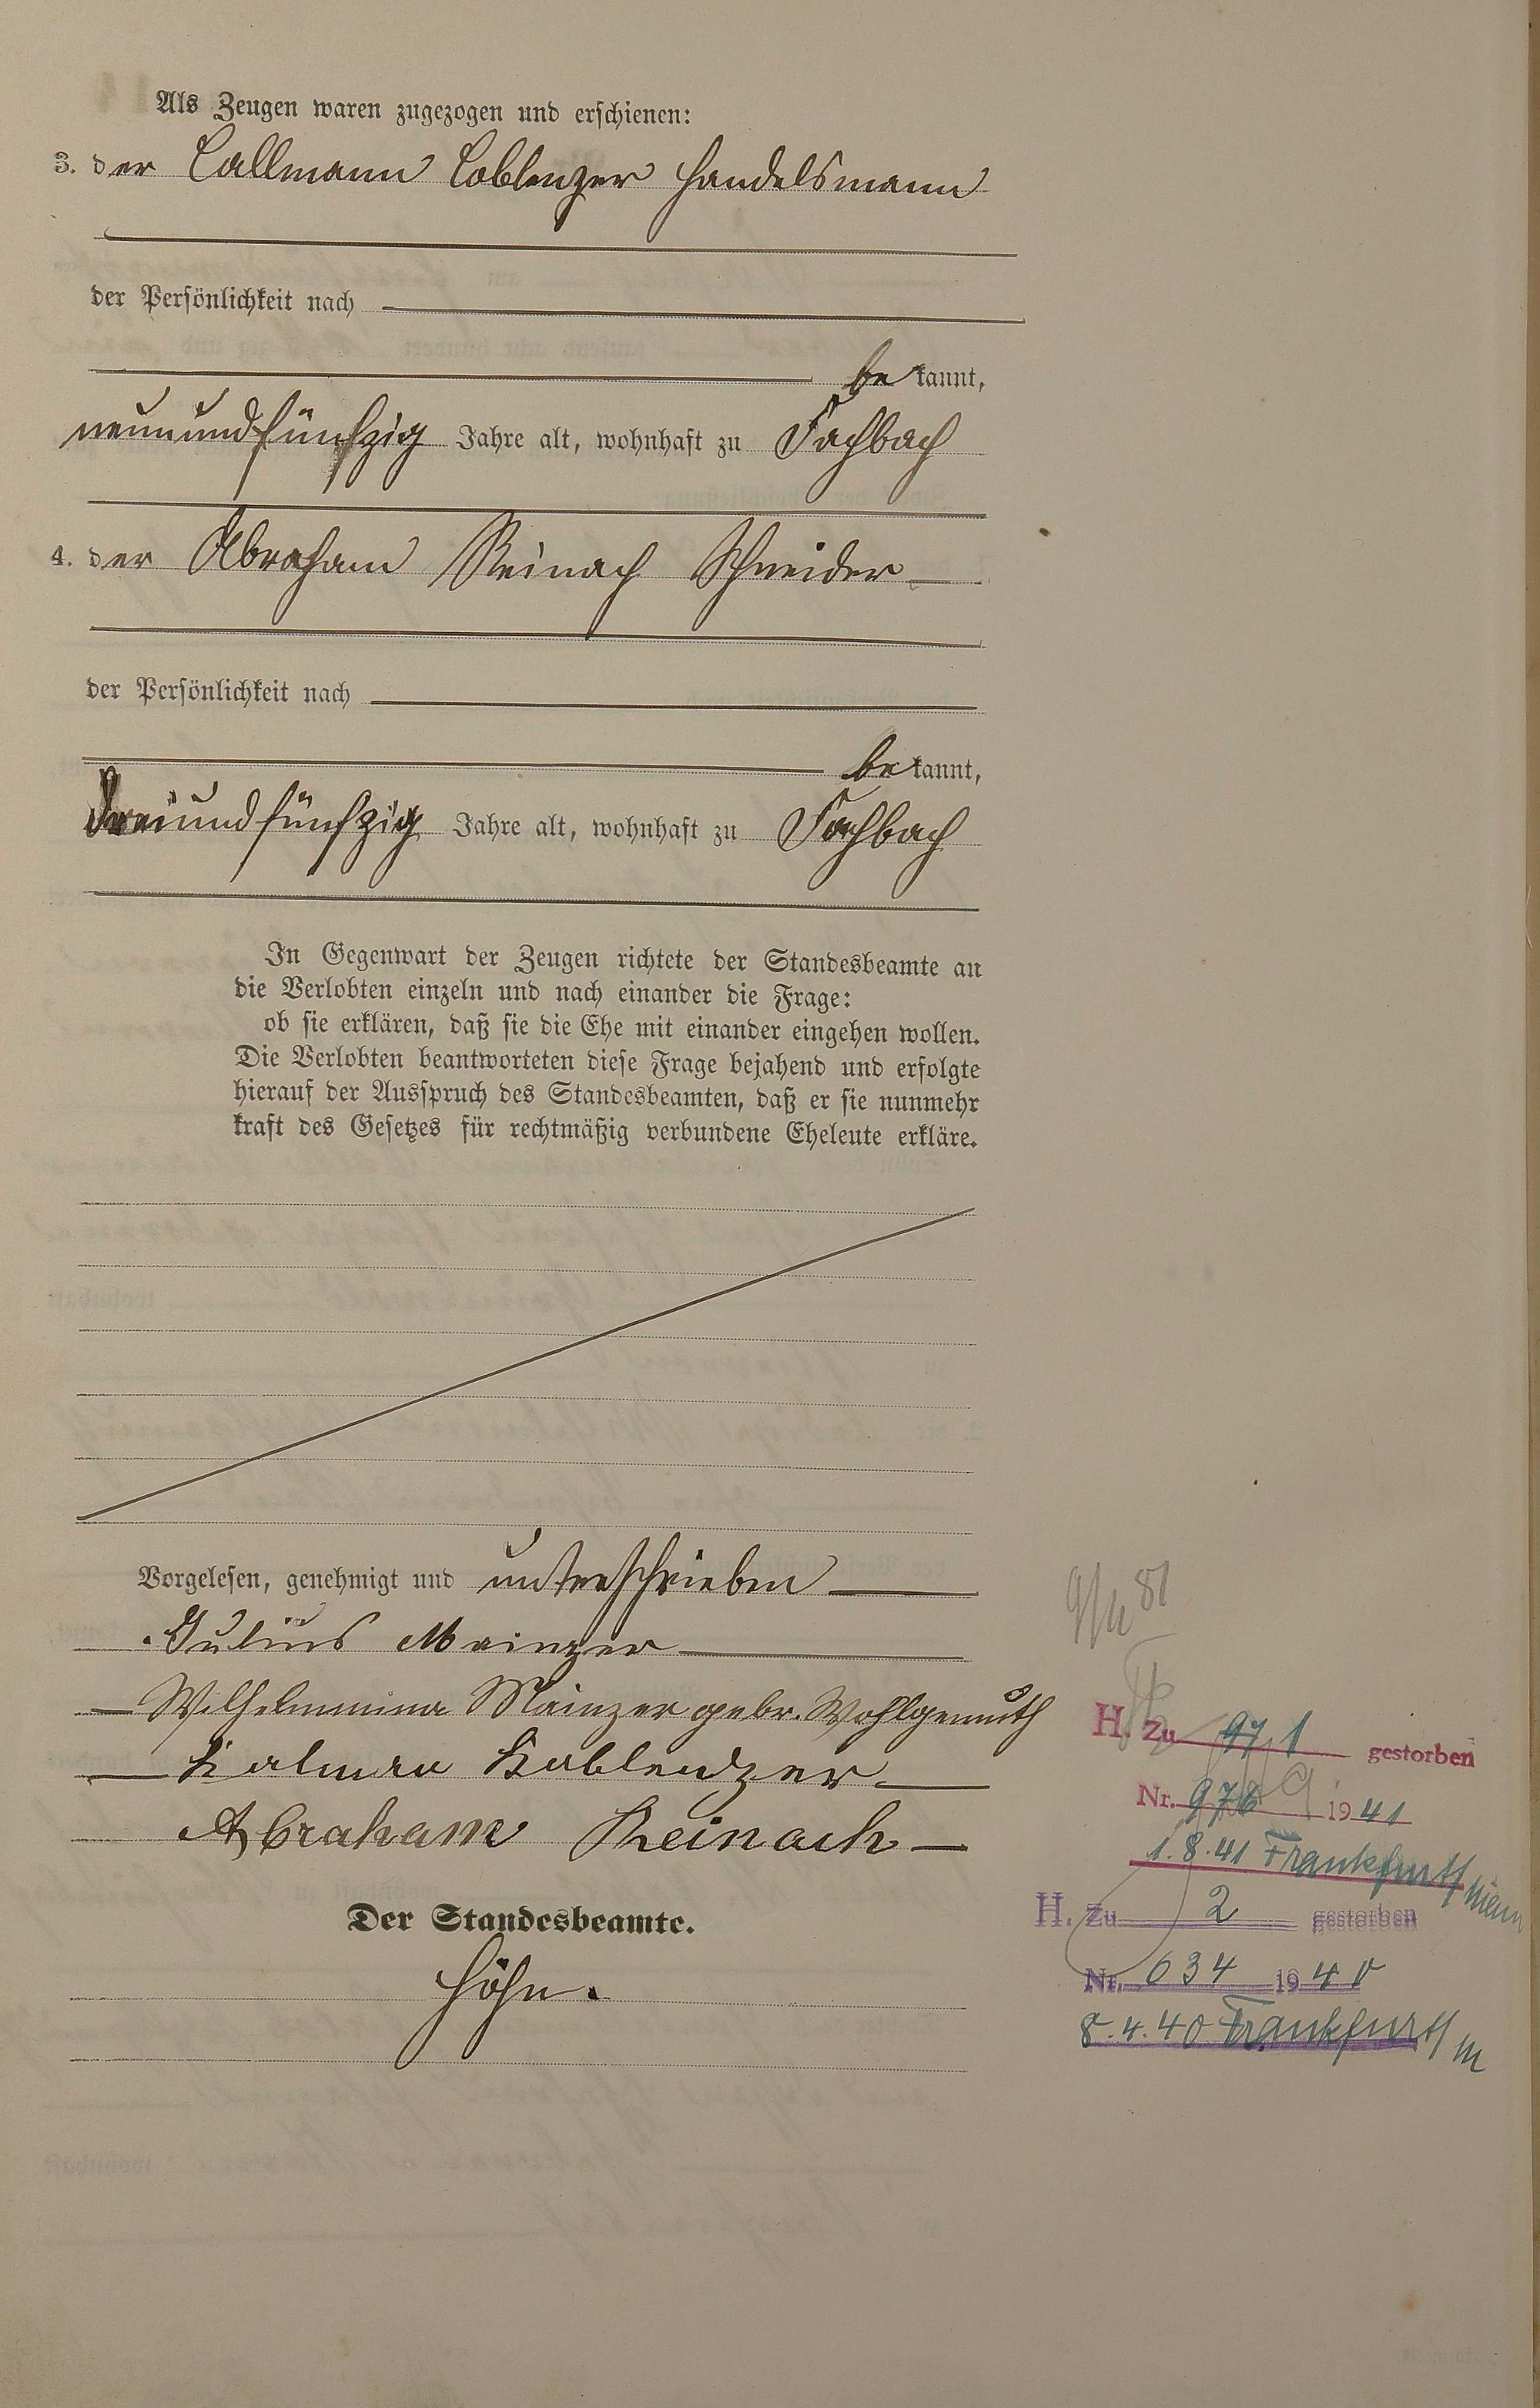 Als Zeugen waren zugezogen und erschienen:
3. der Callmann Coblenzer Handelsmann
der Persönlichkeit nach
bekannt,
neunundfünfzig Jahre alt, wohnhaft zu Fachbach
4. der Abraham Reinach Schneider
der Persönlichkeit nach
bekannt,
dreiundfünfzig Jahre alt, wohnhaft zu Fachbach
In Gegenwart der Zeugen richtete der Standesbeamte an
die Verlobten einzeln und nach einander die Frage:
ob sie erklären, daß sie die Ehe mit einander eingehen wollen.
Die Verlobten beantworteten diese Frage bejahend und erfolgte
hierauf der Ausspruch des Standesbeamten, daß er sie nunmehr
kraft des Gesetzes für rechtmäßig verbundene Eheleute erkläre.
Vorgelesen, genehmigt und unterschrieben
Julius Mainzer
Wilhelmmina Mainzer gebr. Wohlgemuth
Kalman Koblendzer
Abraham Reinach
Der Standesbeamte.
Höhn.
H. Zu 1 gestorben
Nr. 976 1941
1.8.41 Frankfurt/Main
H. Zu 2 gestorben
Nr. 634 1940
8.4.40 Frankfurt/M